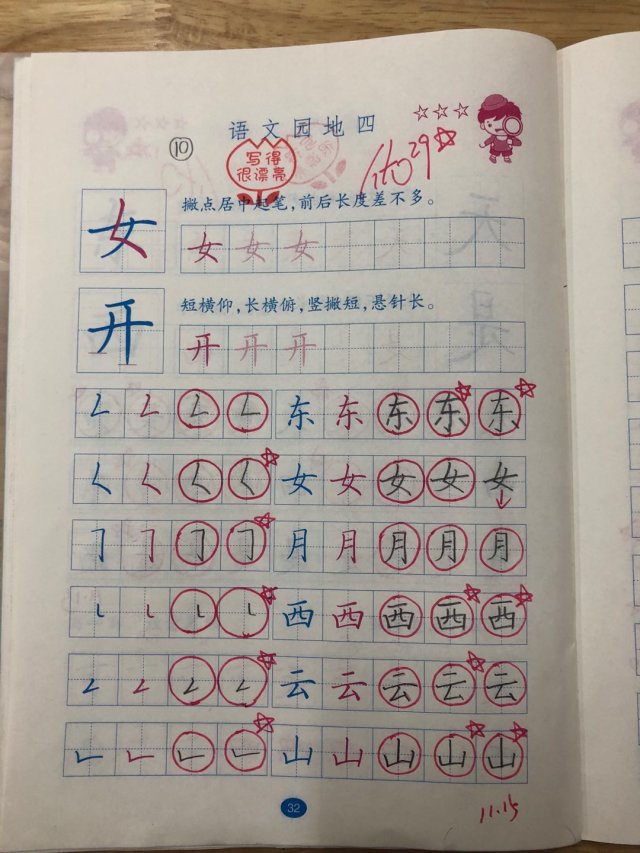 语文园地四
⑩
写得
很漂亮
100 29
女 撇点居中起笔，前后长度差不多。
女 女 女
开 短横仰，长横俯，竖撇短，悬针长。
开 开 开
𠃋 𠃋 𠃋 𠃋 东 东 东 东 东
𡿨 𡿨 𡿨 𡿨 女 女 女 女 女
㇆ ㇆ ㇆ ㇆ 月 月 月 月 月
㇄ ㇄ ㇄ ㇄ 西 西 西 西 西
𠃋 𠃋 𠃋 𠃋 云 云 云 云 云
㇗ ㇗ ㇗ ㇗ 山 山 山 山 山
32
11.15